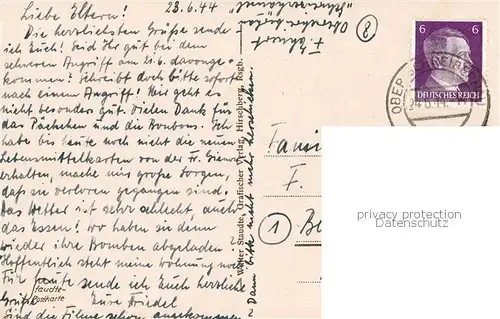 Liebe Eltern! 23.6.44
Die herzlichsten Grüße sende
ich Euch! Seid Ihr gut bei dem
schweren Angriff am 21.6. davonge-
kommen? Schreibt doch bitte sofort
nach einem Angriff! Mir geht es
nicht besonders gut. Vielen Dank für
das Päckchen und die Bonbons. Ich
habe bis heute noch nicht die neuen
Lebensmittelkarten von der Fr.
erhalten, mache mir große Sorgen,
daß sie verloren gegangen sind.
Das Wetter ist sehr schlecht, auch
das Essen! Wo haben sie denn
wieder ihre Bomben abgeladen?
Hoffentlich steht meine Wohnung noch.
Für heute sende ich Euch herzliche
Grüße Eure Friedel
Sind die Filme schon angekommen?
Dann bitte nicht mehr herschicken
Staudte-
Postkarte
Walter Staudte, Grafischer Verlag, Hirschberg, Rsgb.
8
6 6
DEUTSCHES REICH
OBERSCHREIBERHAU
24.6.44
F.
1
privacy protection
Datenschutz